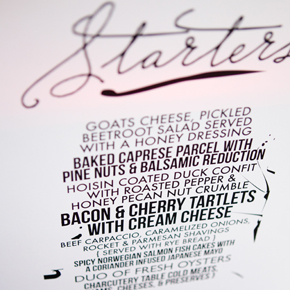 Starters
GOATS CHEESE, PICKLED
BEETROOT SALAD SERVED
WITH A HONEY DRESSING
BAKED CAPRESE PARCEL WITH
PINE NUTS & BALSAMIC REDUCTION
HOISIN COATED DUCK CONFIT
WITH ROASTED PEPPER &
HONEY PECAN NUT CRUMBLE
BACON & CHERRY TARTLETS
WITH CREAM CHEESE
BEEF CARPACCIO, CARAMELIZED ONIONS,
ROCKET & PARMESAN SHAVINGS
( SERVED WITH RYE BREAD )
SPICY NORWEGIAN SALMON FISH CAKES WITH
A CORIANDER INFUSED JAPANESE MAYO
DUO OF FRESH OYSTERS
CHARCUTERY TABLE COLD MEATS,
CHEESES, & PRESERVES?